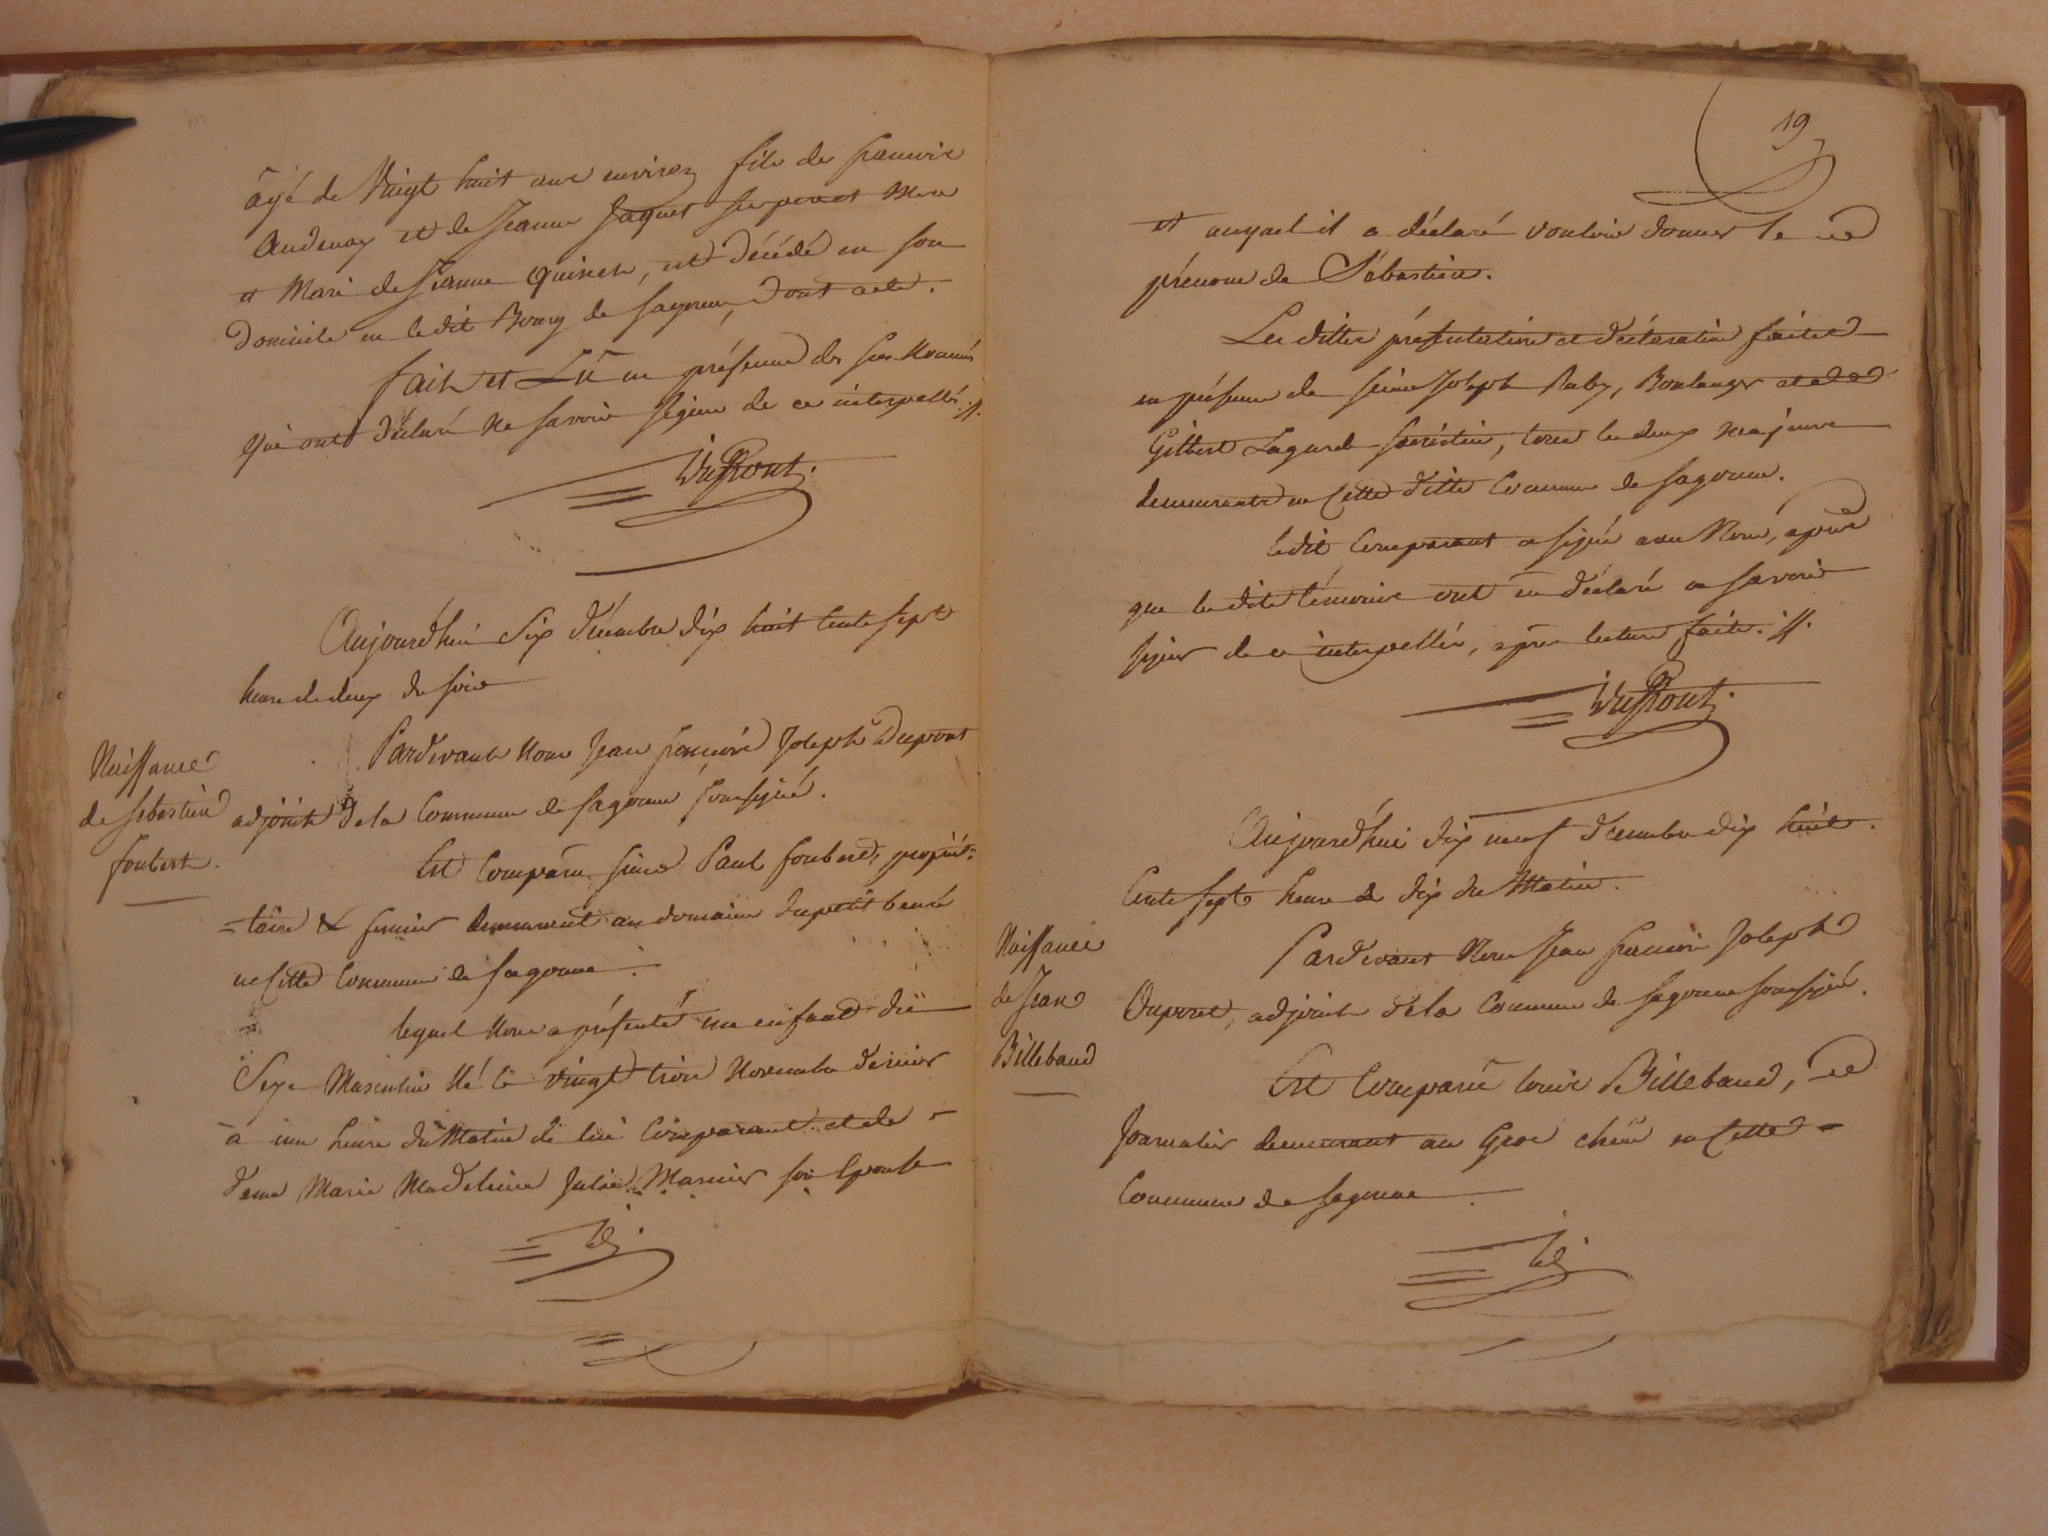 âgé de Vingt huit ans environ fils de francois
Audenay et de Jeanne Jaquet ses pere et Mere
et Mari de Jeanne quinet, est décédé en son
domicile en le dit Bourg de sagonne, dont acte.
fait et Lû en présence des sus-Només
qui ont déclaré ne savoir signer de ce interpellé ./.
Dupont.
Aujourd'hui Six décembre dix huit Cents sept
heure de deux du soir
Pardevant Nous Jean francois Joseph Dupont
adjoint de la Commune de sagonne sousigné.
Naissance
de sebastien
foubert.
Est Comparu sieur Paul foubert, proprié-
=taire & fermier demeurant au domaine du petit
en Cette Commune de sagonne.
lequel Nous a présenté un enfant du
Sexe Masculin Né le vingt trois Novembre dernier
à une heure du Matin de lui Comparant et de
dame Marie Madeleine Julie Marnier son Epouse
19
et auquel il a déclaré vouloir donner le
prénom de Sébastien.
Les dittes présentation et déclaration faites
en présence de sieur Joseph Ruby, Boulanger et de
Gilbert Lagarde sacristin, tous les deux majeurs
demeurants en Cette ditte Commune de sagonne.
le dit Comparant a signé avec Nous, après
que les dits témoins ont déclaré ne savoir
signer de ce interpellés, après lecture faite ./.
Dupont.
Aujourd'hui dix neuf décembre dix huit
Cents sept heure de dix du Matin.
Naissance
de Jean
Billebaud
Pardevant Nous Jean francois Joseph
Dupont, adjoint de la Commune de sagonne sousigné.
Est Comparû louis Billebaud,
Journalier demeurant au Gros chêne en Cette
Commune de sagonne.